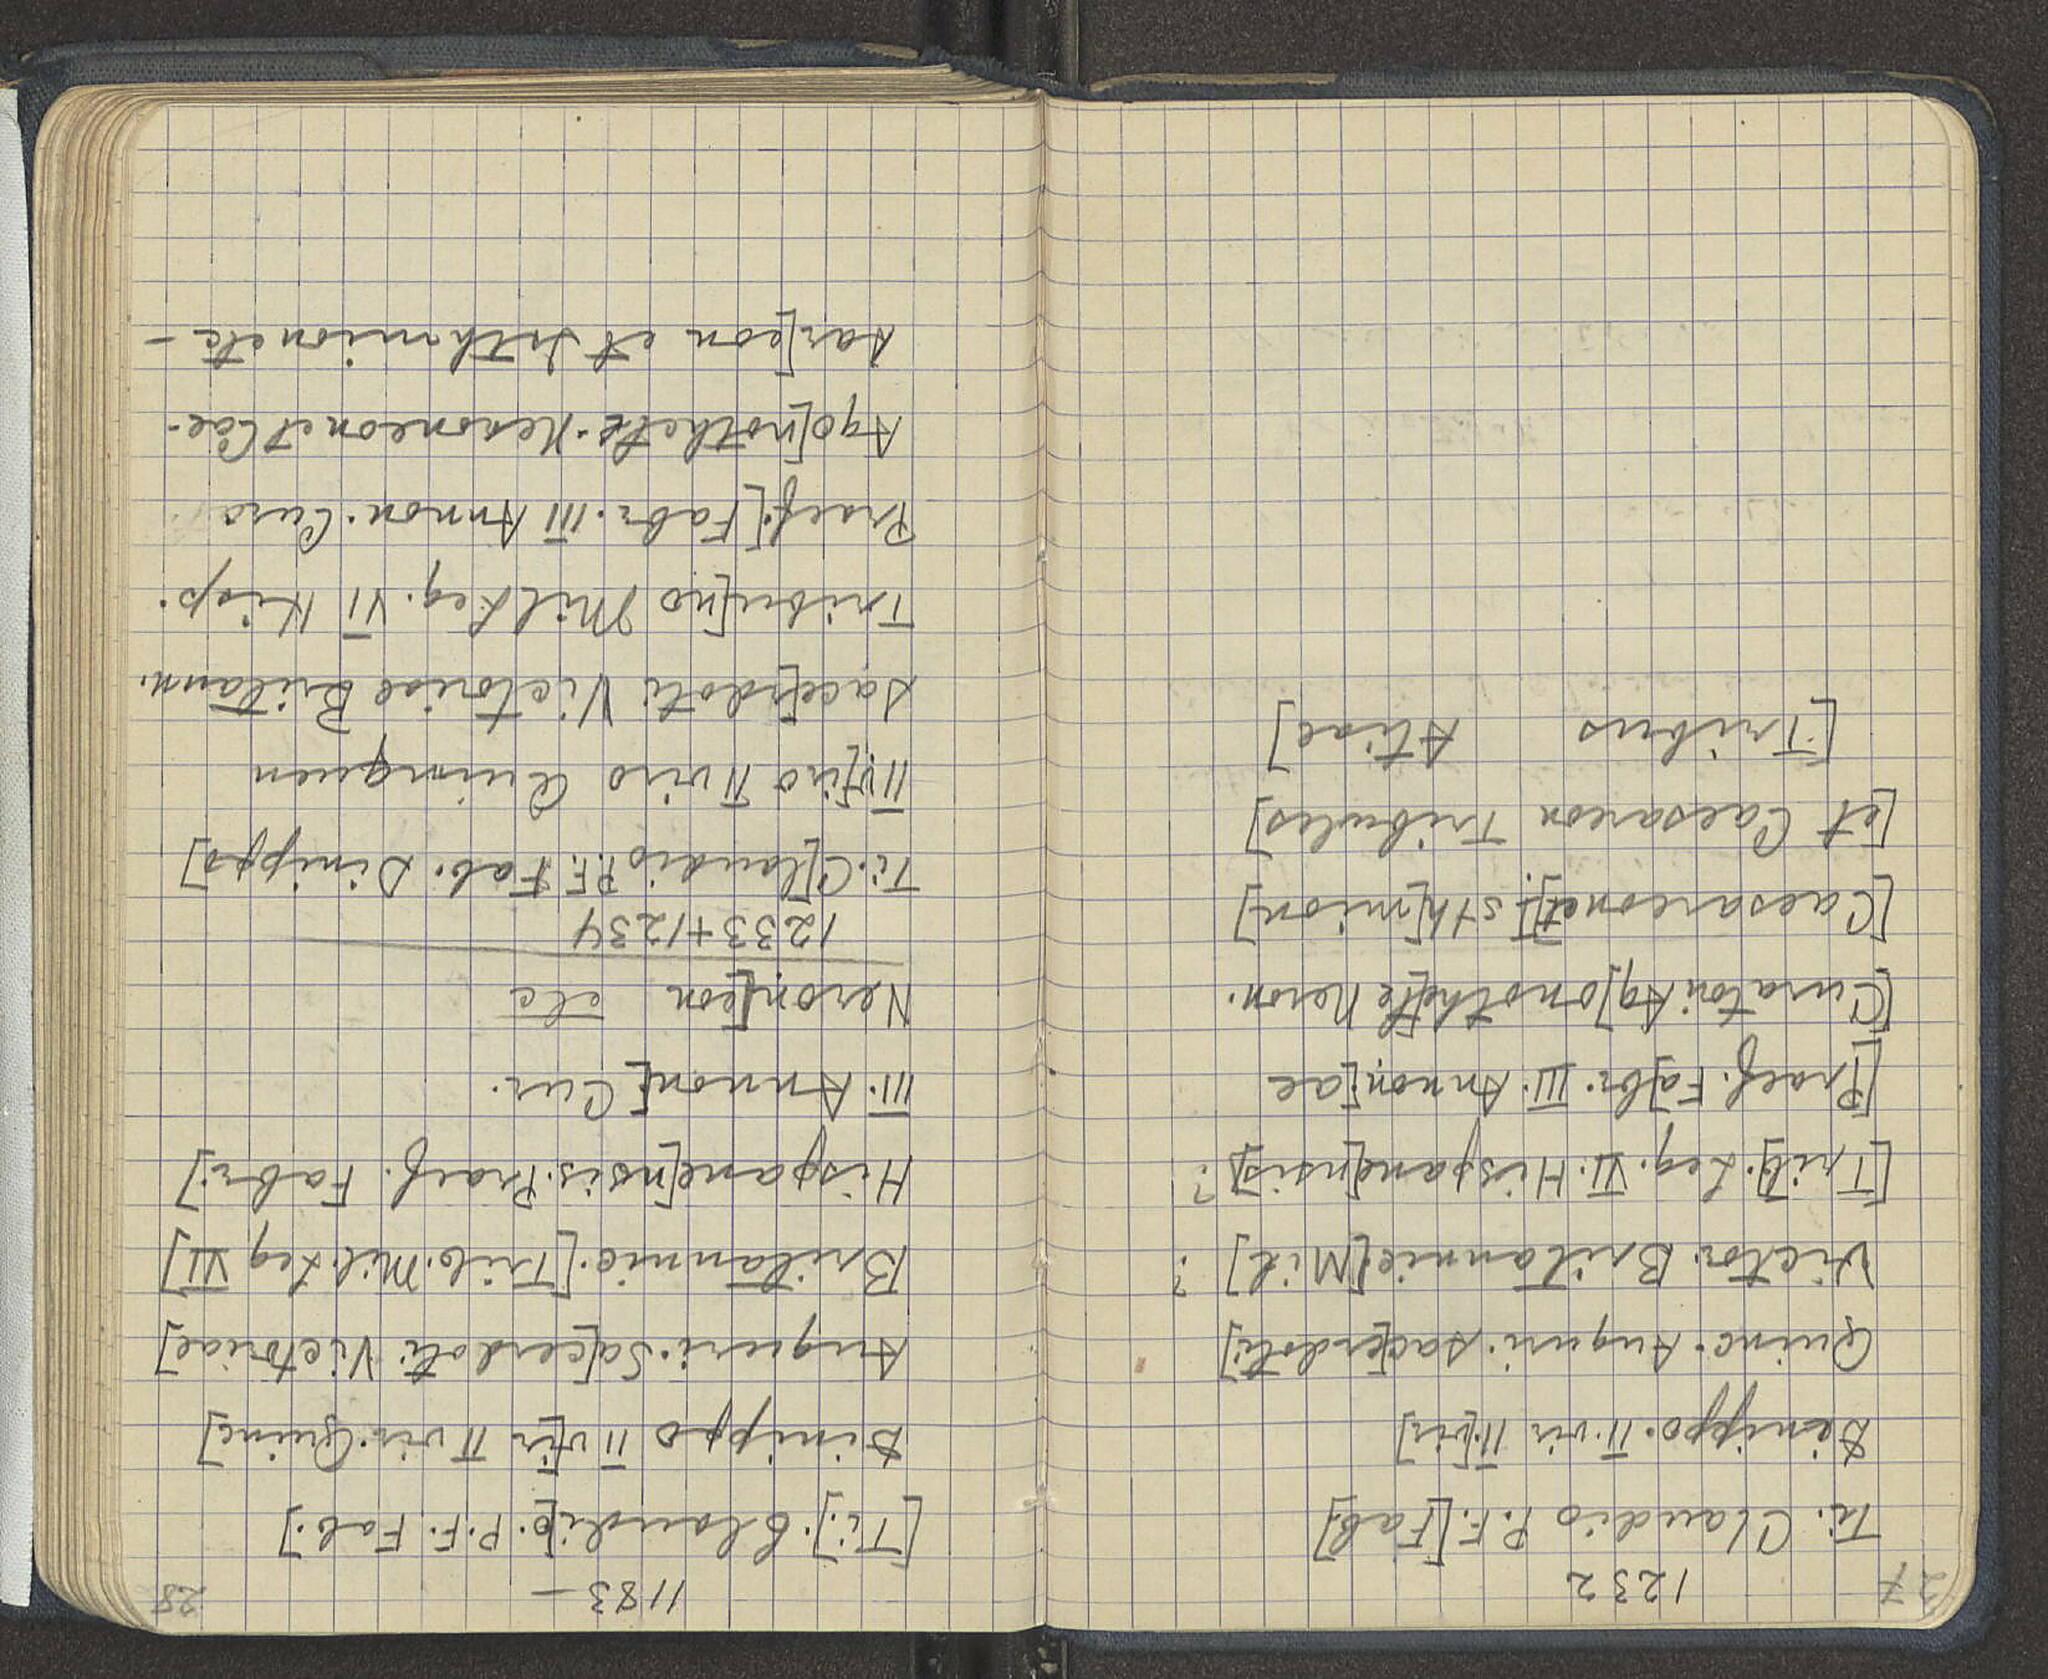 27
1232
Ti. Claudio P.F. [Fab.]
Dinippo. II. vir II [vir]
Quinc. Auguri. Sac[erdoti]
Victor. Britannic[Mil] ?
[Trib]. Leg. VI. Hispane[nsis] ?
[Praef. Fa]br. III. Annon[ae
[Curatori Ag]onothe[te Neron.
[Caesareon et] Isth[mion]
[et Caesareon Tribules]
[Tribus Atiae]
28
1183 —
[Ti]. Claudi[o. P.F. Fab.]
Dinippo II v[ir II vir. Quinc]
Auguri. Sa[cerdoti Victoriae]
Britannic. [Trib. Mil. Leg VI]
Hispane[nsis. Praef. Fabr.]
III. Annon[ Cur.
Neron[eon etc
1233+1234
Ti. C[laudio P.F. Fab. Dinippo]
II v[iro II viro Quinquen
Sace[rdoti Victoriae Britann.
Tribu[no Mil Leg. VI Hisp.
Praef. [Fabr. III Annon. Curo
Ago[nothete. Neroneon et Cae-
sar[eon et Isthmion etc —